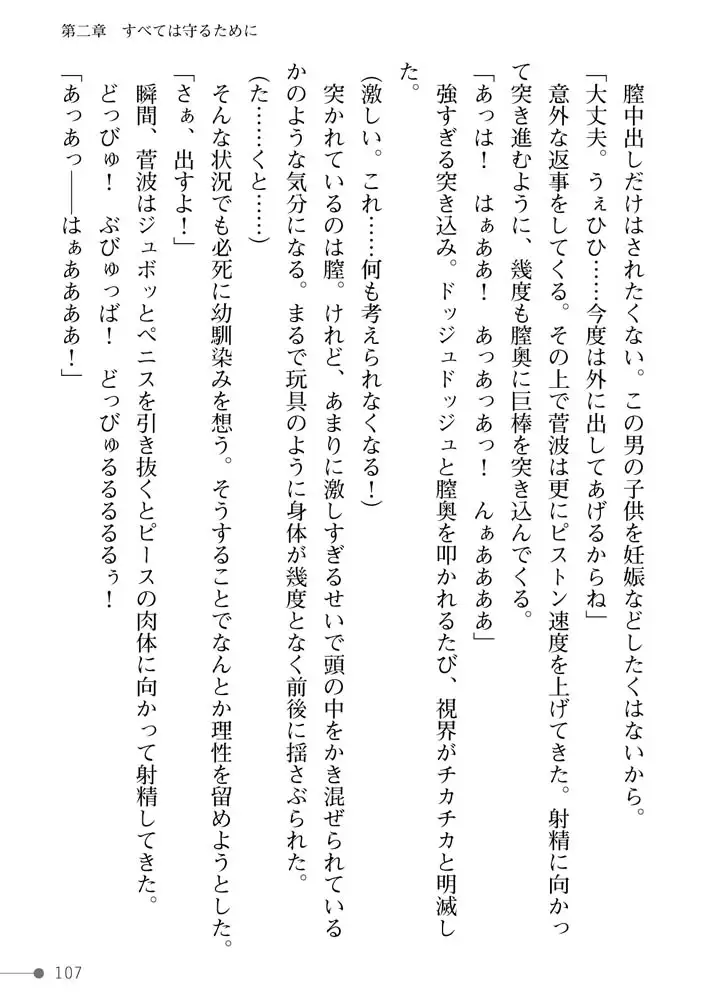 第二章　すべては守るために
　膣中出しだけはされたくない。この男の子供を妊娠などしたくはないから。
「大丈夫。うぇひひ……今度は外に出してあげるからね」
　意外な返事をしてくる。その上で菅波は更にピストン速度を上げてきた。射精に向かっ
て突き進むように、幾度も膣奥に巨棒を突き込んでくる。
「あっは！　はぁああ！　あっあっあっ！　んぁああああ」
　強すぎる突き込み。ドッジュドッジュと膣奥を叩かれるたび、視界がチカチカと明滅し
た。
（激しい。これ……何も考えられなくなる！）
　突かれているのは膣。けれど、あまりに激しすぎるせいで頭の中をかき混ぜられている
かのような気分になる。まるで玩具のように身体が幾度となく前後に揺さぶられた。
（た……くと……）
　そんな状況でも必死に幼馴染みを想う。そうすることでなんとか理性を留めようとした。
「さぁ、出すよ！」
　瞬間、菅波はジュボッとペニスを引き抜くとピースの肉体に向かって射精してきた。
　どっびゅ！　ぶびゅっば！　どっびゅるるるるるぅ！
「あっあっ――はぁああああ！」
107